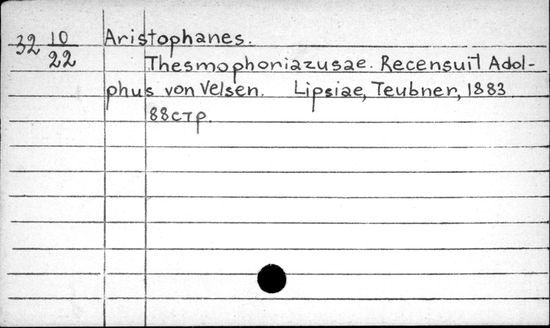 32 10/22 Aristophanes.
Thesmophoriazusae. Recensuit Adol-
phus von Velsen. Lipsiae, Teubner, 1883
88стр.